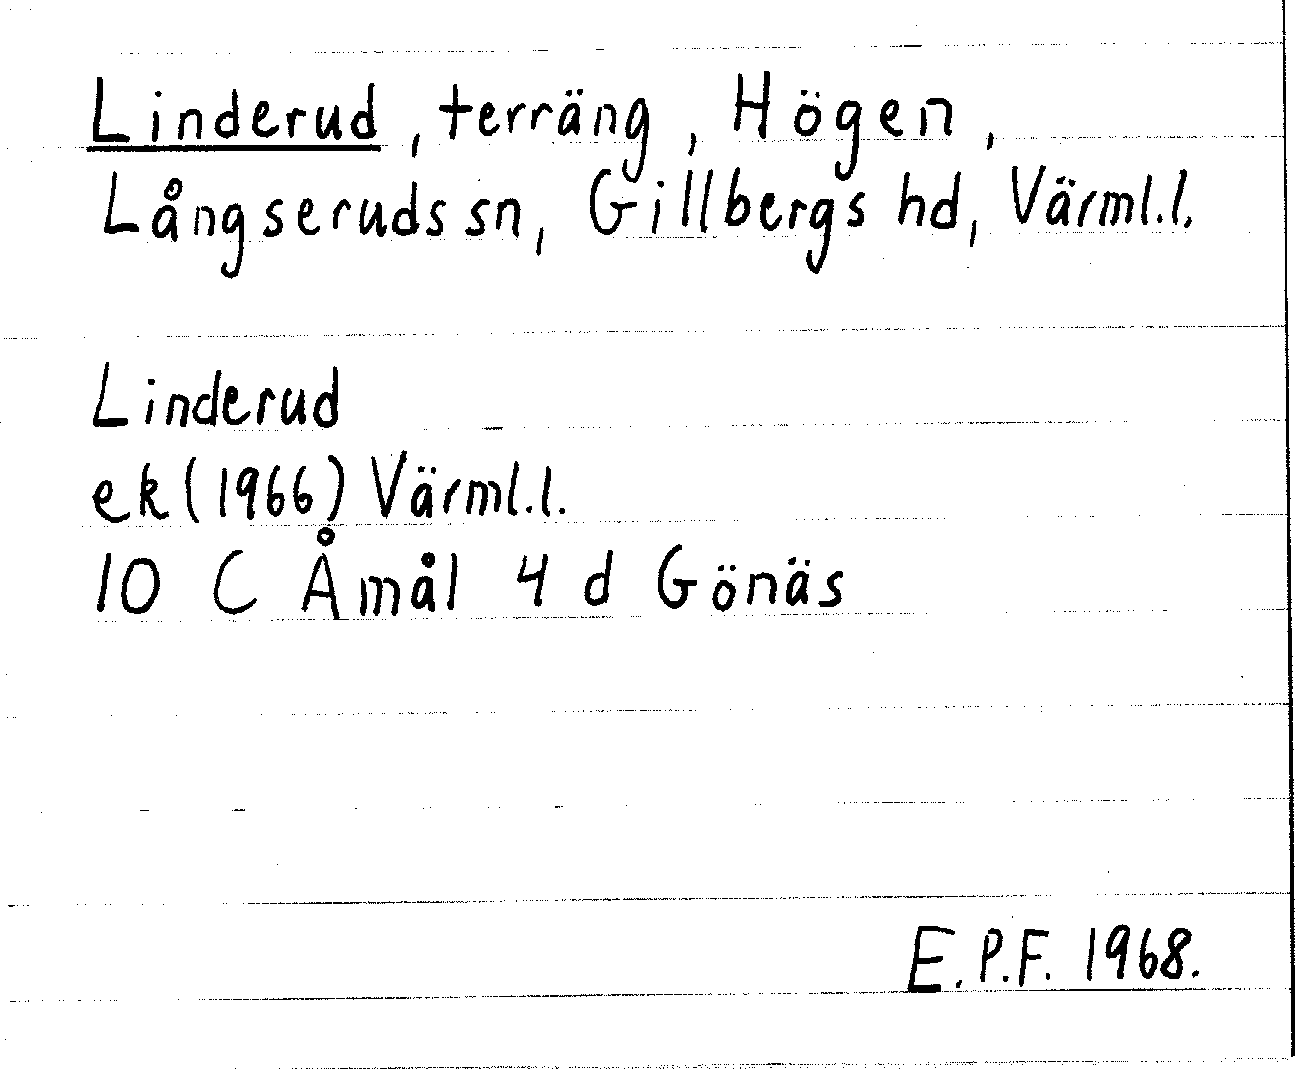 Linderud, terräng, Högen,
Långseruds sn, Gillbergs hd, Värml.l.
Linderud
ek (1966) Värml.l.
10 C Åmål 4 d Gönäs
E.P.F. 1968.